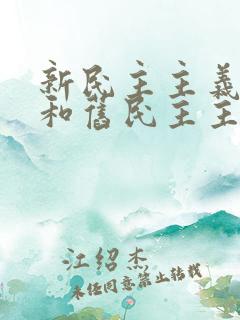 新民主主義
和舊民主主
江绍杰
未经同意禁止转载